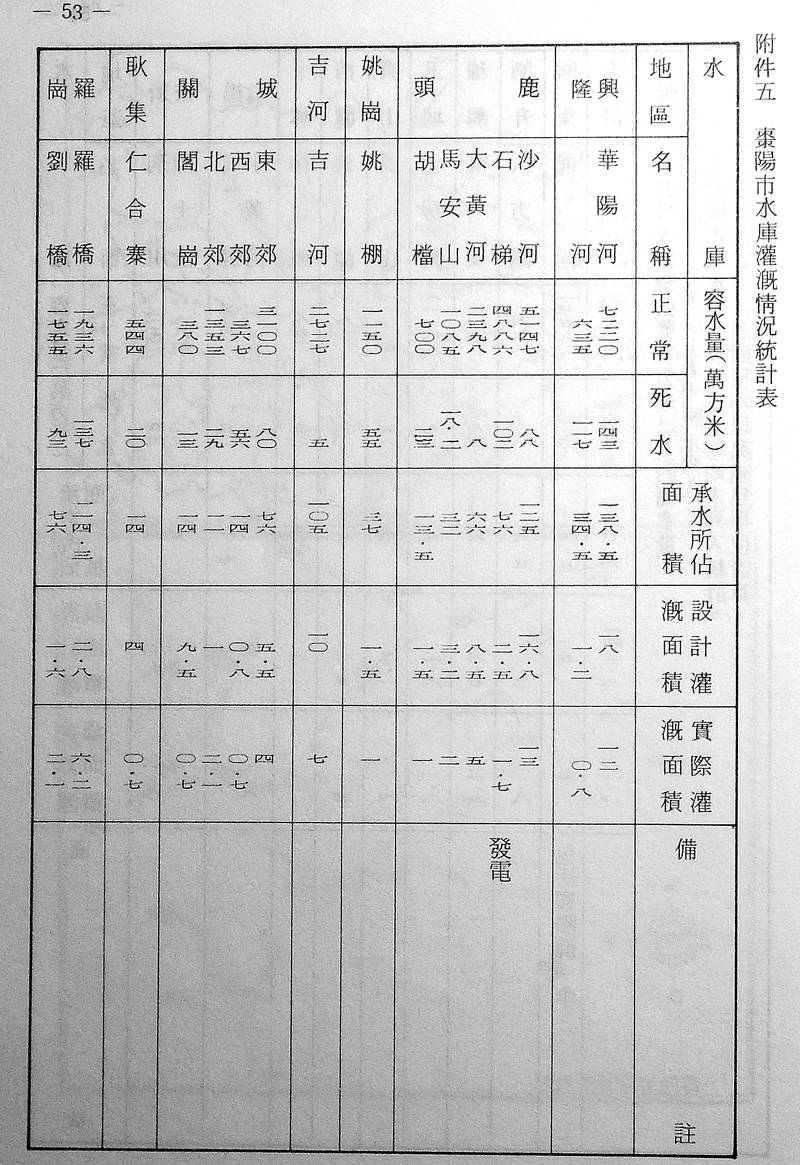 — 53 —
附件五　棗陽市水庫灌溉情況統計表
水庫 容水量(萬方米) 承水所佔面積 設計灌溉面積 實際灌溉面積 備註
地區 名稱 正常 死水
興隆 華陽河 七二二〇 一四三 一三八·五 一八 一二
河 六三五 一一七 三四·五 一·二 〇·八
鹿頭 沙河 五一四七 八八 一二五 一六·八 一三
石梯 四八八六 一〇二 七六 二·五 一·七 發電
大黃河 二三九八 八 六六 八·五 五
馬安山 一〇八五 一八·二 三二 三·二 二
胡檔 七〇〇 二三 一三·五 一·五 一
姚崗 姚棚 一一五〇 五五 三七 一·五 一
吉河 吉河 二七二七 五 一〇五 一〇 七
城關 東郊 三一〇〇 八〇 七六 五·五 四
西郊 三六七 五六 一四 〇·八 〇·七
北郊 一三五三 二九 一一 一 二·一
閣崗 三八〇 一三 一四 九·五 〇·七
耿集 仁合寨 五四四 二〇 一四 四 〇·七
羅崗 羅橋 一九三六 一三七 二一四·三 二·八 六·二
劉橋 一七五五 九三 七六 一·六 二·一